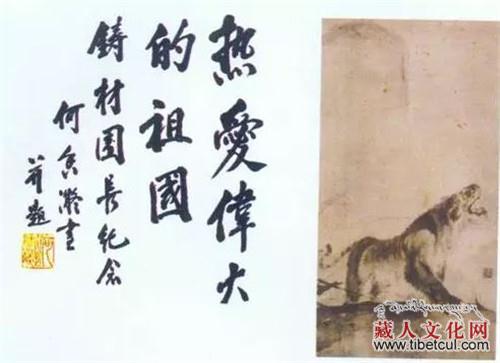 热愛偉大
的祖國
鑄材团長纪念
何香凝畫
并题
藏人文化网
www.tibetcul.com